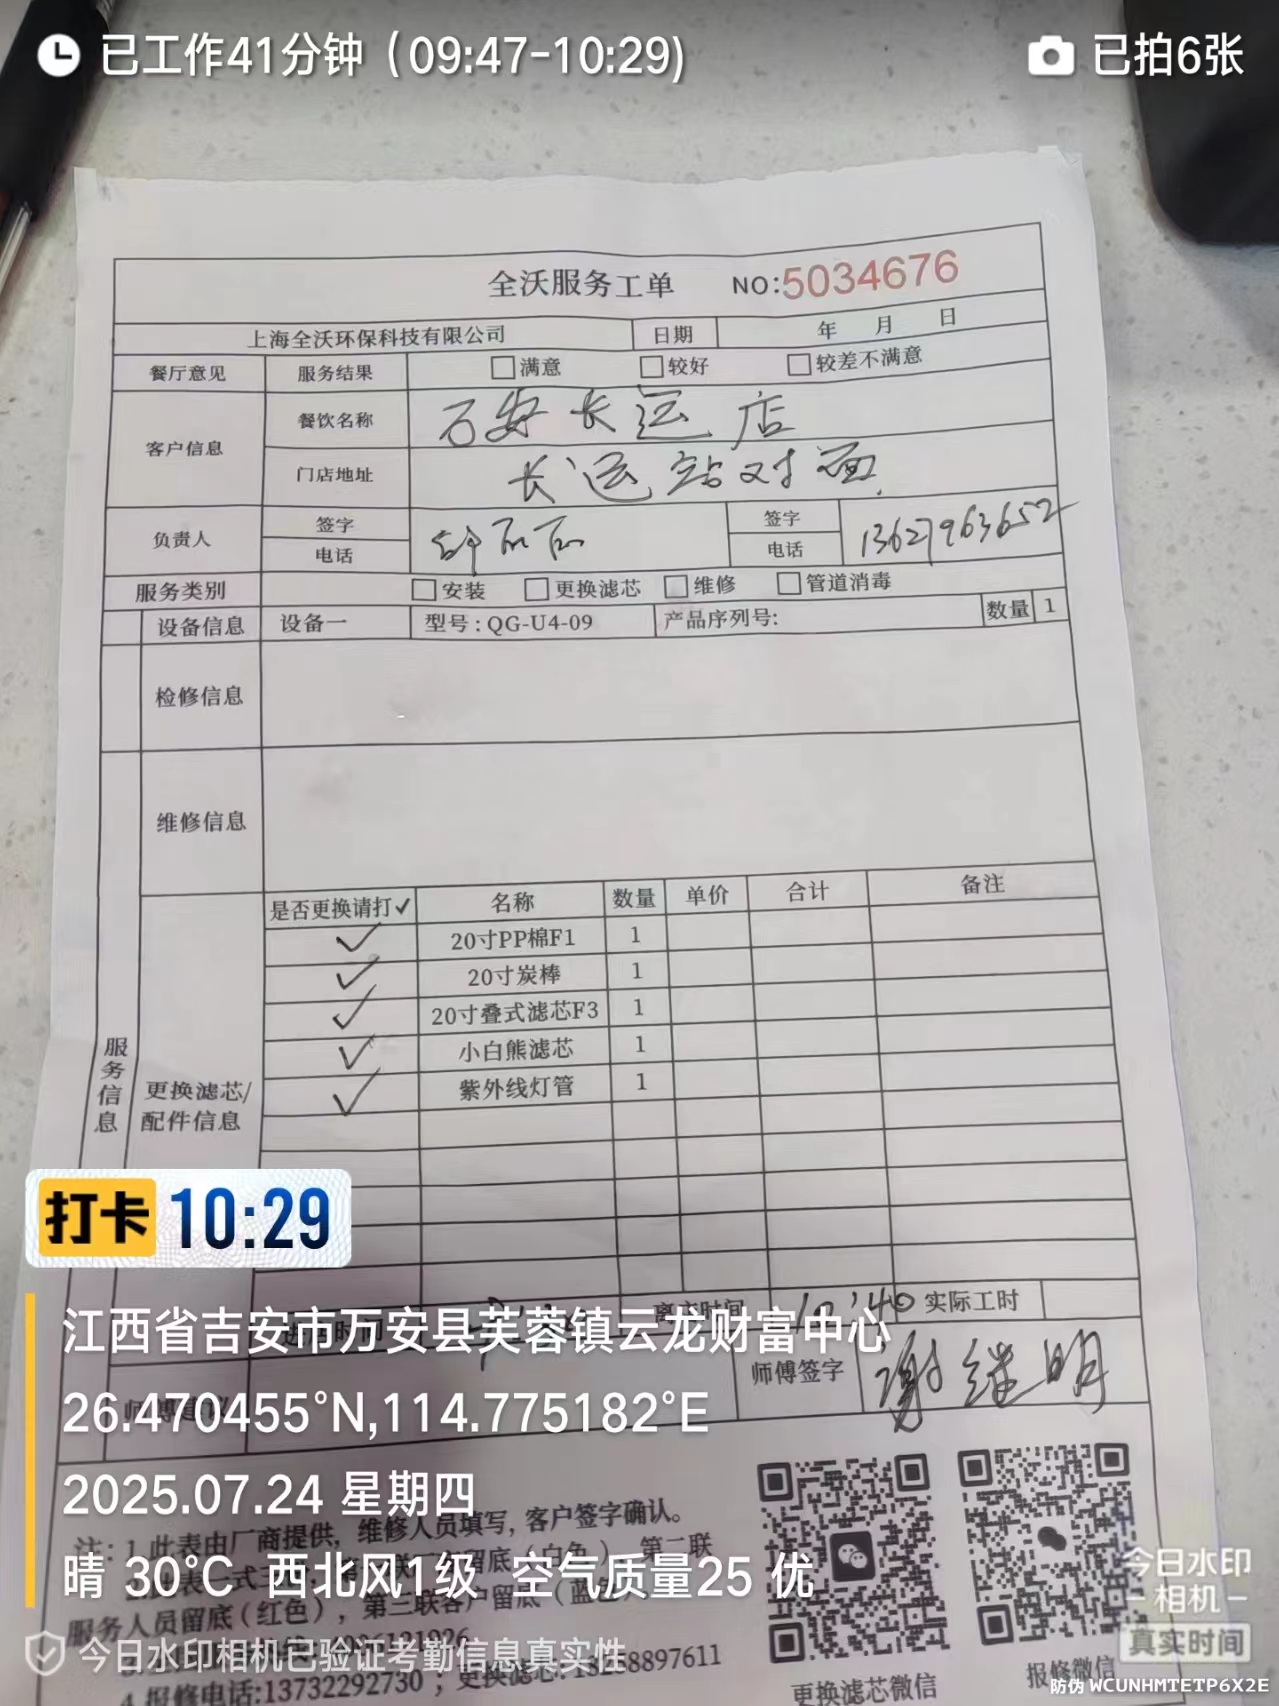 已工作41分钟（09:47-10:29)
已拍6张
全沃服务工单 NO:5034676
上海全沃环保科技有限公司 日期 年 月 日
餐厅意见 服务结果 满意 较好 较差不满意
客户信息 餐饮名称 万安长运店
门店地址 长运站对面
负责人 签字 签字 13627963652
电话 电话
服务类别 安装 更换滤芯 维修 管道消毒
设备信息 设备一 型号:QG-U4-09 产品序列号: 数量 1
检修信息
维修信息
是否更换请打✓ 名称 数量 单价 合计 备注
✓ 20寸PP棉F1 1
✓ 20寸炭棒 1
✓ 20寸叠式滤芯F3 1
✓ 小白熊滤芯 1
✓ 紫外线灯管 1
服务信息
更换滤芯/
配件信息
打卡 10:29
离店时间 10:40 实际工时
江西省吉安市万安县芙蓉镇云龙财富中心
师傅签字 谢继明
26.470455°N,114.775182°E
2025.07.24 星期四
注: 1.此表由厂商提供,维修人员填写,客户签字确认。
留底(白色),第二联
晴 30°C 西北风1级 空气质量25 优
服务人员留底(红色),第三联客户留底(蓝色)
今日水印相机已验证考勤信息真实性
4.报修电话:13732292730；更换滤芯:13258897611
更换滤芯微信
报修微信
今日水印
相机
真实时间
防伪 WCUNHMTETP6X2E